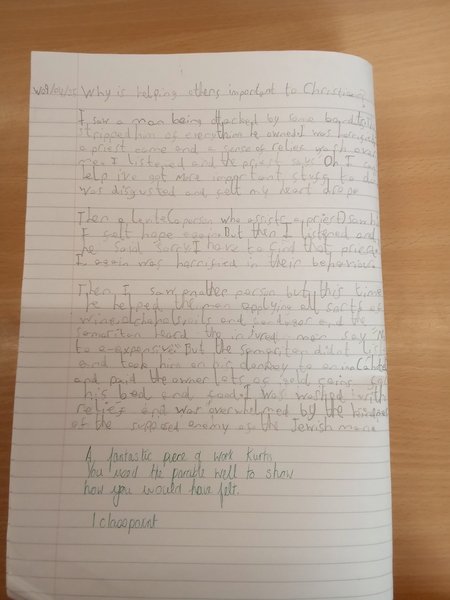 Why is helping others important to Christians?
I saw a man being attacked by some
stripped him of everything he owned I was horrified
a priest came and a sense of relief wash over
me. I listened and the priest says Oh I
help I've got more important stuff to do
was disgusted and felt my heart drop
Then a levite (a person who assists a priest) saw him
I felt hope again. But then I listened and
he said sorry I have to find that priest
I again was horrified in their behaviour.
Then, I saw another person but this time
he helped the man applying all sorts of
and the
samaritan heard the injured man say
to expensive. But the samaritan didnt
and took him on his donkey to an inn
and paid the owner lots of gold coins for
his bed and food. I was washed with
relief and was overwhelmed by the
of the supposed enemy of the Jewish man.
A fantastic piece of work Kurtis
You used the parable well to show
how you would have felt.
1 classpoint